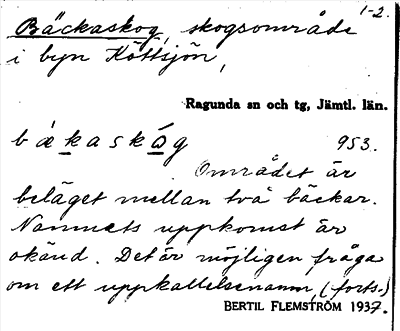 1-2.
Bäckaskog, skogsområde
i byn Köttsjön,
Ragunda sn och tg, Jämtl. län.
bækaskåg 953.
Området är
beläget mellan två bäckar.
Namnets uppkomst är
okänd. Det är möjligen fråga
om ett uppkallelsenamn, (forts.)
BERTIL FLEMSTRÖM 1937.